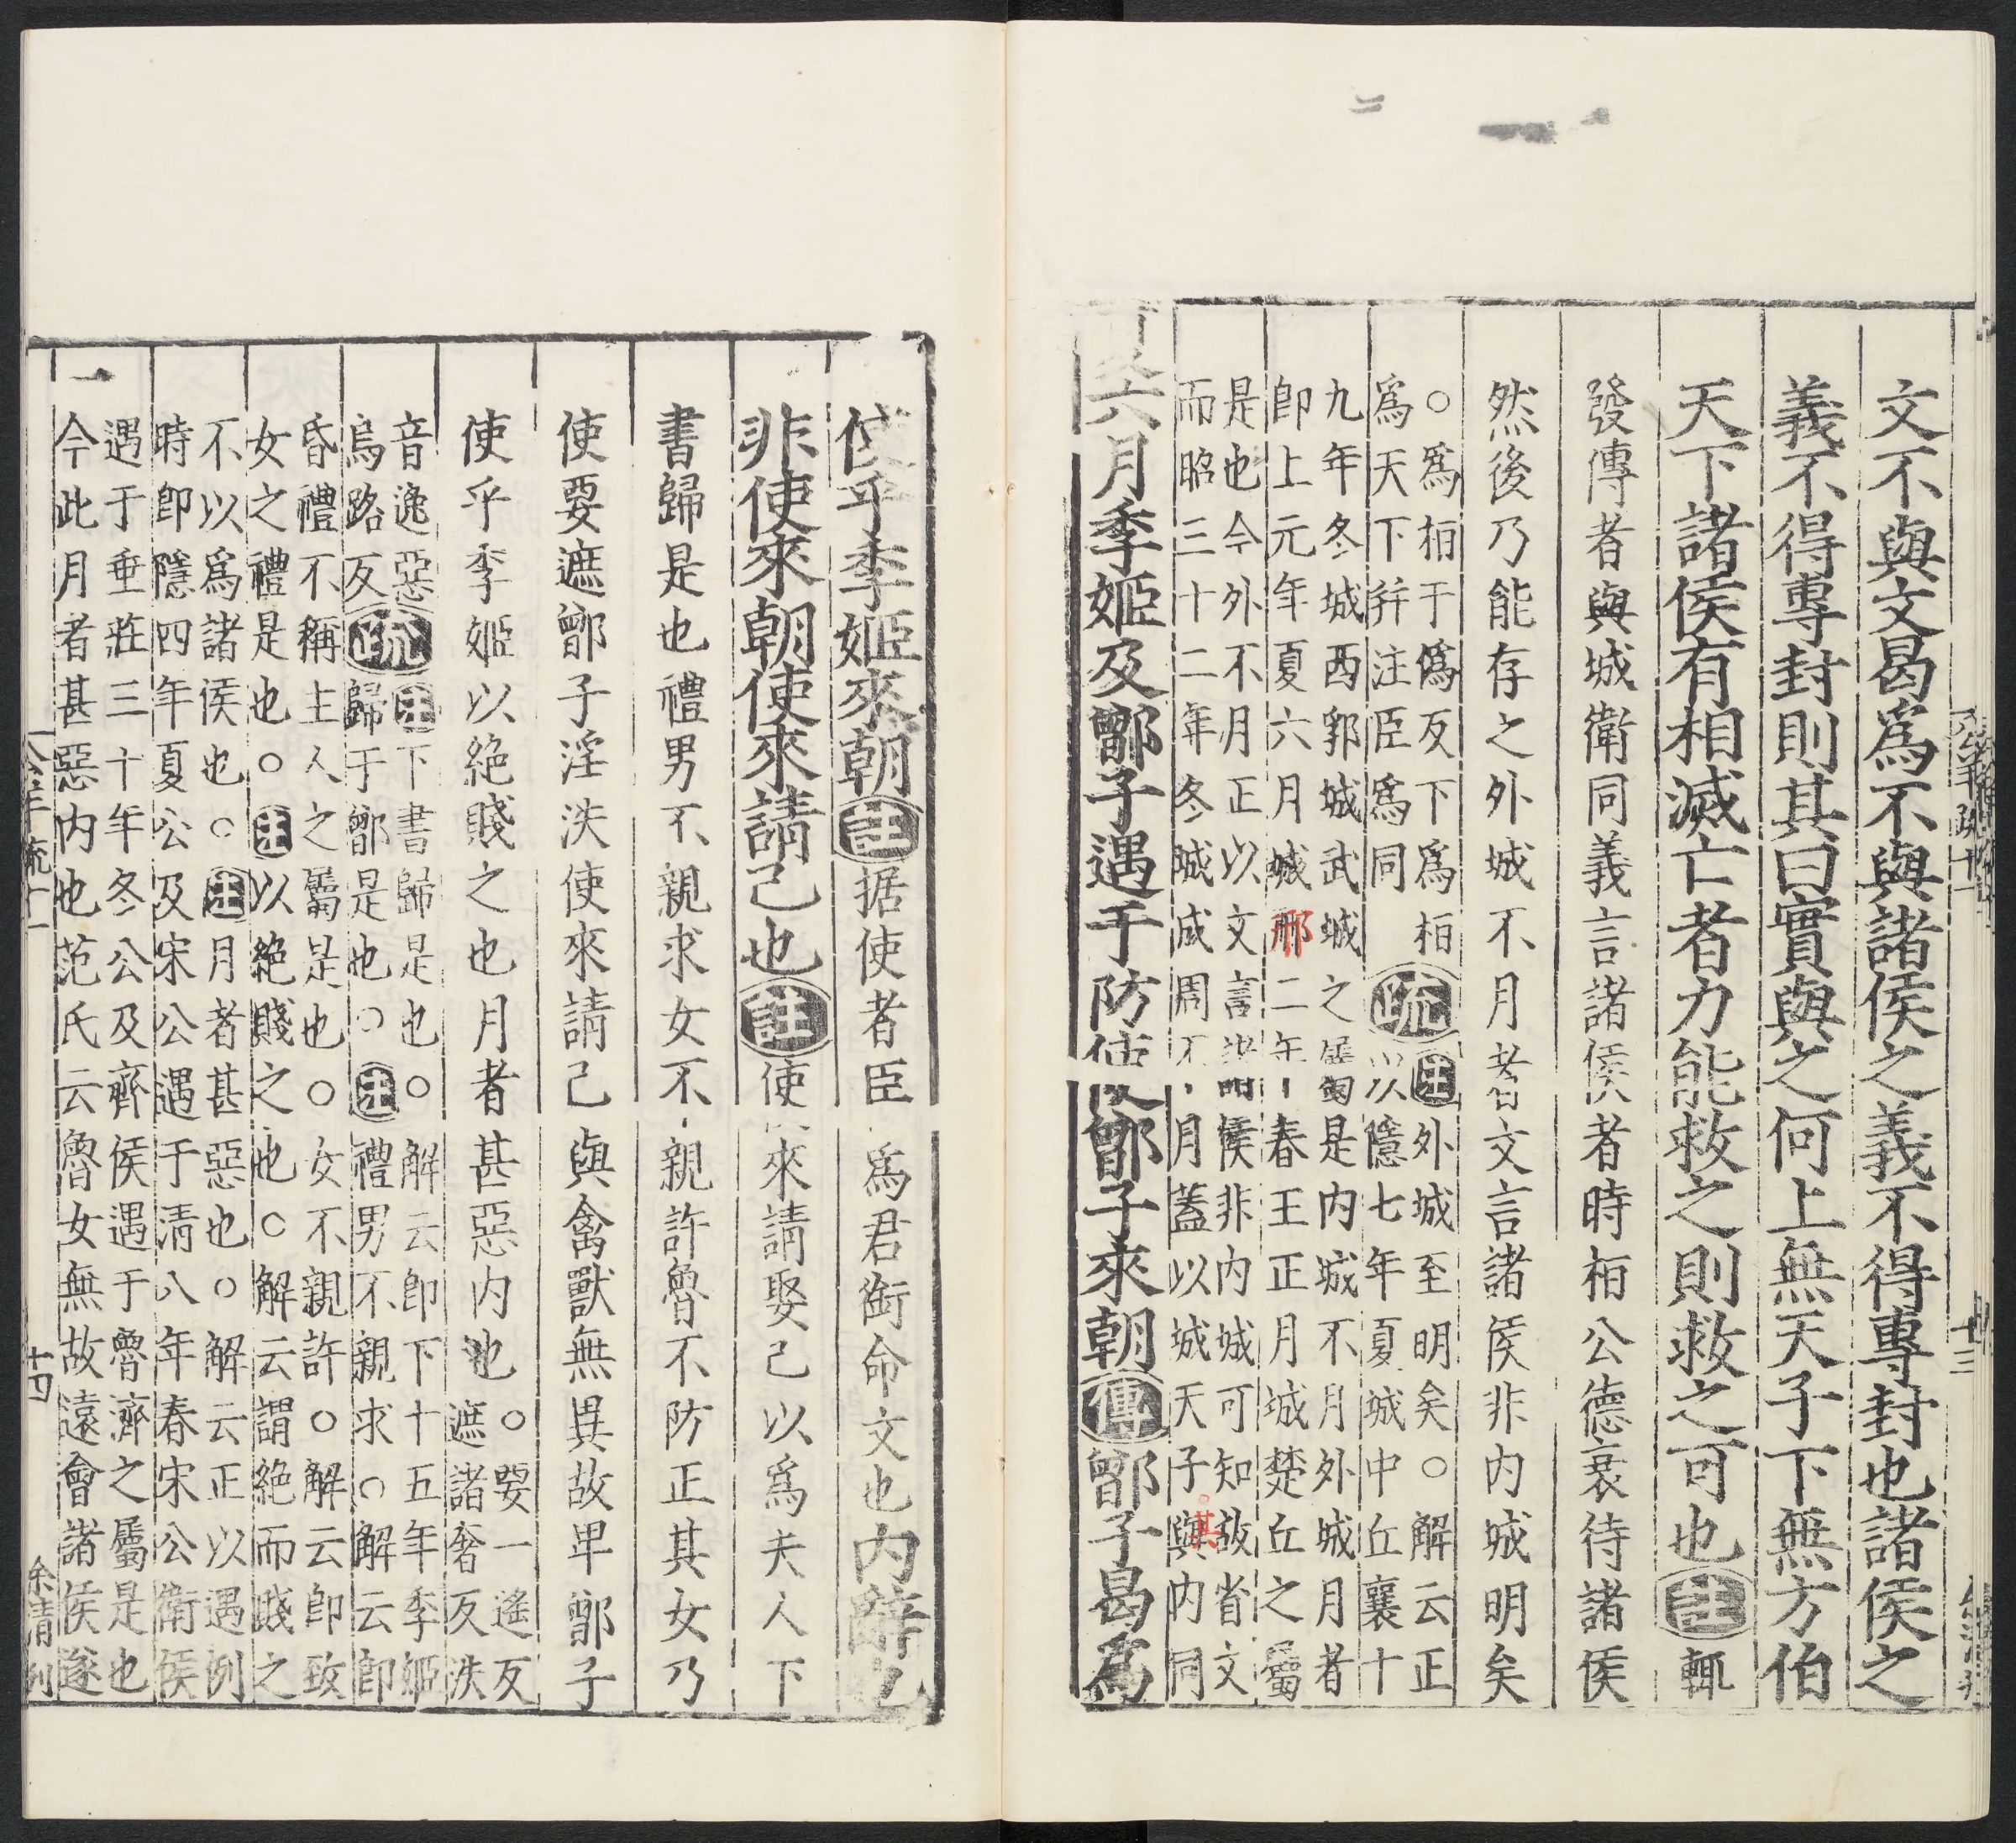 文不與文曷爲不與諸侯之義不得專封也諸侯之
義不得專封則其曰實與之何上無天子下無方伯
天下諸侯有相滅亡者力能救之則救之可也註輒
發傳者與城衛同義言諸侯者時桓公德衰待諸侯
然後乃能存之外城不月者文言諸侯非內城明矣
○爲桓于僞反下爲桓疏注外城至明矣○解云正
爲天下并注臣爲同以隱七年夏城中丘襄十
九年冬城西郛城武城之屬是內城不月外城月者
即上元年夏六月城邢二年春王正月城楚丘之屬
是也今外不月正以文言諸侯非內城可知故省文
而昭三十二年冬城成周不月蓋以城天子與內同
其
六月季姬及鄫子遇于防使鄫子來朝傳鄫子曷爲
使乎季姬來朝註据使者臣爲君銜命文也內辭也
非使來朝使來請己也註使來請娶己以爲夫人下
書歸是也禮男不親求女不親許魯不防正其女乃
使要遮鄫子淫泆使來請己與禽獸無異故卑鄫子
使乎季姬以絶賤之也月者甚惡內也○要一遙反
遮諸奢反泆
音逸惡
烏路反疏注下書歸是也○解云即下十五年季姬
歸于鄫是也○注禮男不親求○解云即
昏禮不稱主人之屬是也○女不親許○解云即致
女之禮是也○注以絶賤之也○解云謂絶而賤之
不以爲諸侯也○注月者甚惡也○解云正以遇例
時即隱四年夏公及宋公遇于清八年春宋公衛侯
遇于垂莊三十年冬公及齊侯遇于魯濟之屬是也
今此月者甚惡內也范氏云魯女無故遠會諸侯遂
公羊疏十一
十四
余清刊